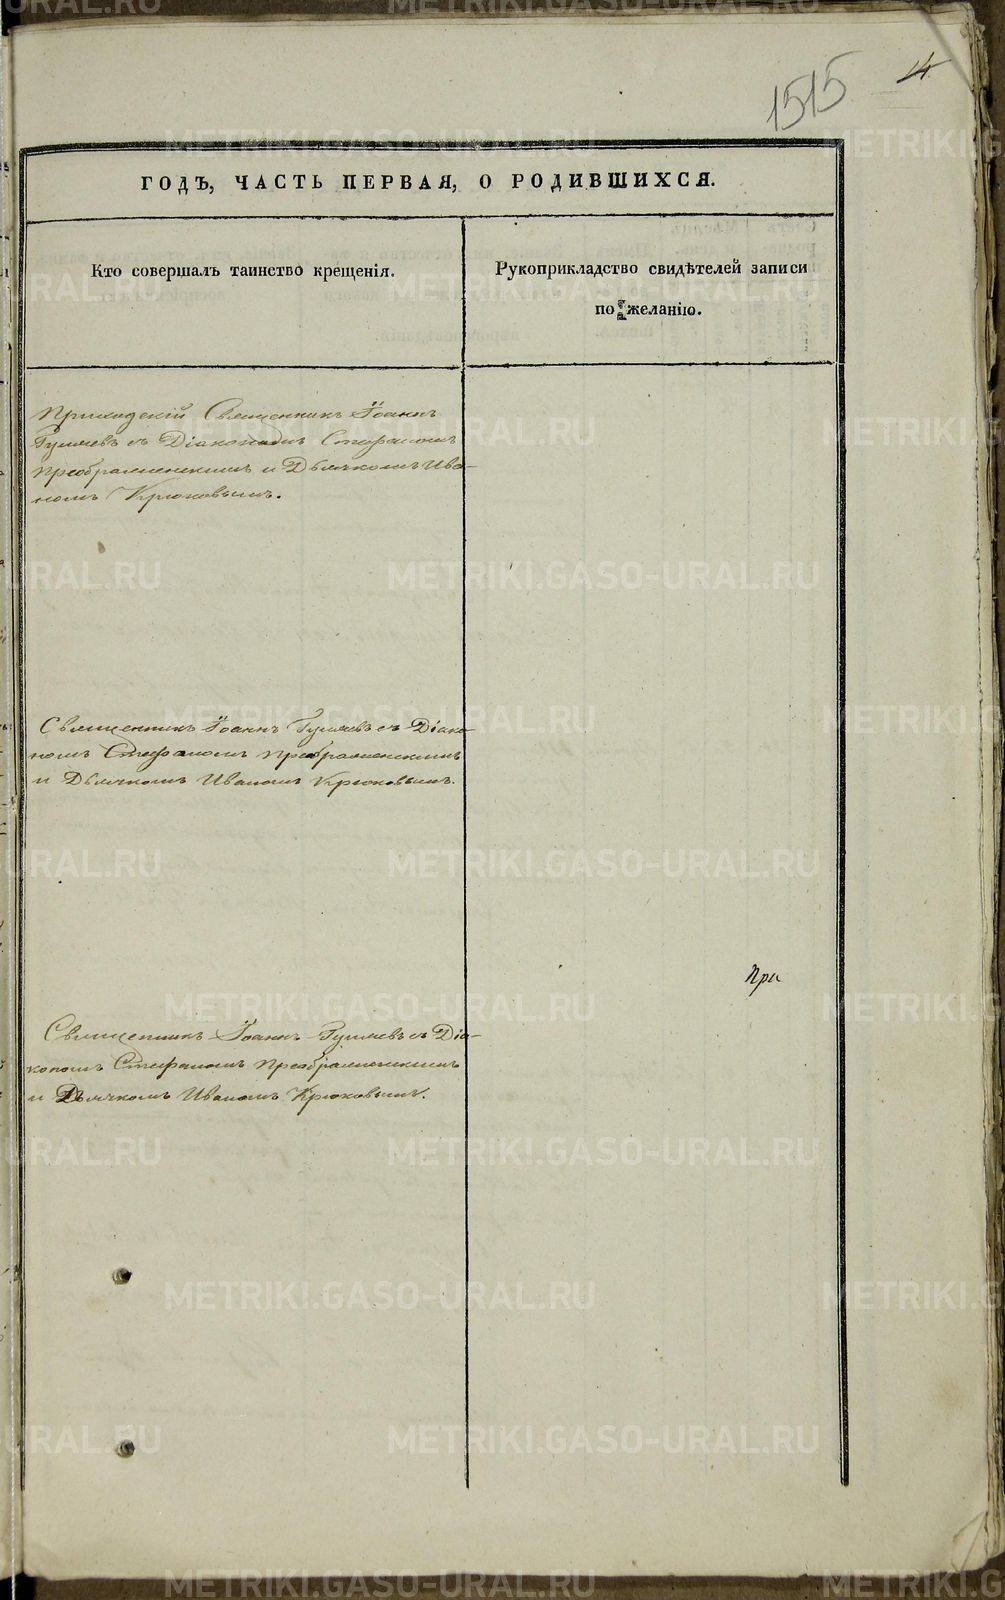 1515
14
ГОДЪ, ЧАСТЬ ПЕРВАЯ, О РОДИВШИХСЯ.
Кто совершалъ таинство крещенія.
Рукоприкладство свидѣтелей записи
по желанію.
Приходскій Священникъ Іоаннъ
Гуляевъ съ Діакономъ Стефаномъ
Преображенскимъ и Дьячкомъ Ива-
номъ Крюковымъ.
Священникъ Іоаннъ Гуляевъ съ Діако-
номъ Стефаномъ Преображенскимъ
и Дьячкомъ Иваномъ Крюковымъ.
При
Священникъ Іоаннъ Гуляевъ съ Діа-
кономъ Стефаномъ Преображенскимъ
и Дьячкомъ Иваномъ Крюковымъ.
METRIKI.GASO-URAL.RU